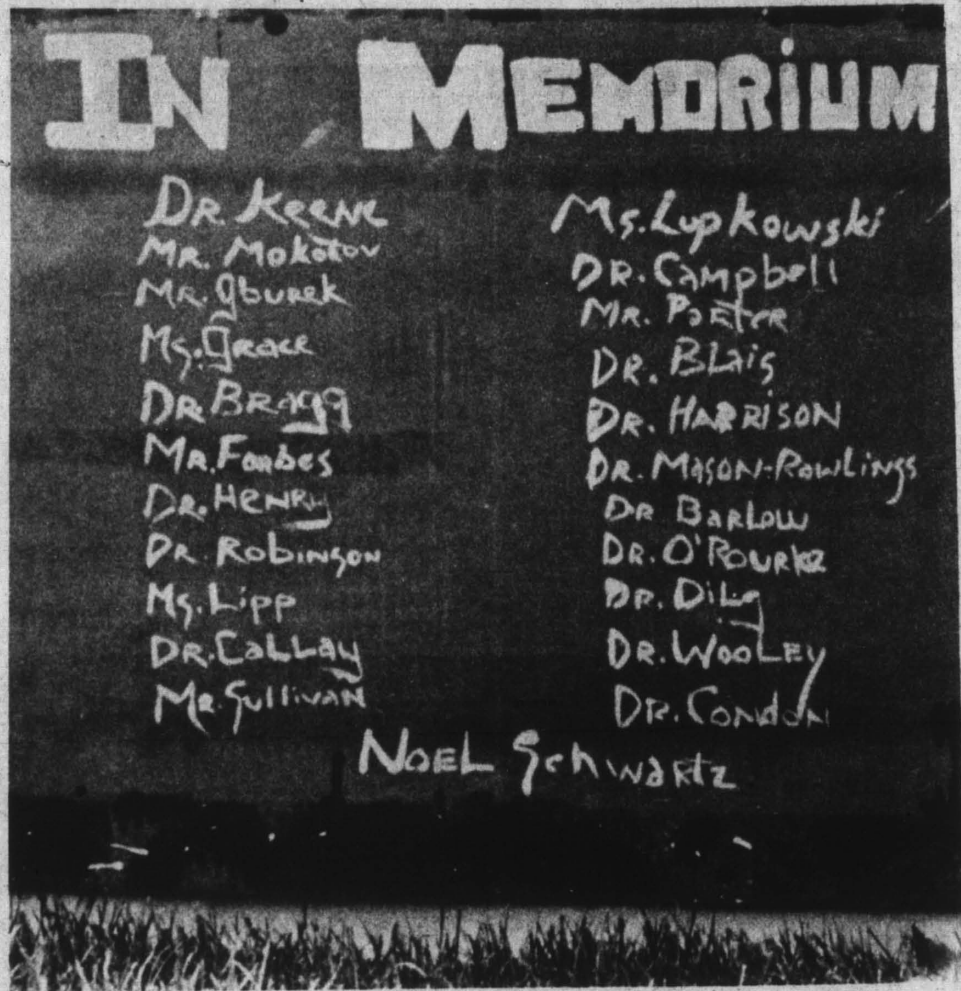 IN MEMORIUM
DR. Keene
MR. Mokotov
MR. Gburek
Ms. Grace
DR. BRAgg
MR. Forbes
DR. HENRy
DR. RobiNsoN
Ms. Lipp
DR. CaLLay
MR. SulliVAN
Ms. Lupkowski
DR. Campbell
MR. Porter
DR. BLais
DR. HARRISON
DR. MASON-RowLings
DR BarLow
DR. O'Rourke
DR. DiLg
DR. WooLEy
DR. CondoN
NOEL Schwartz